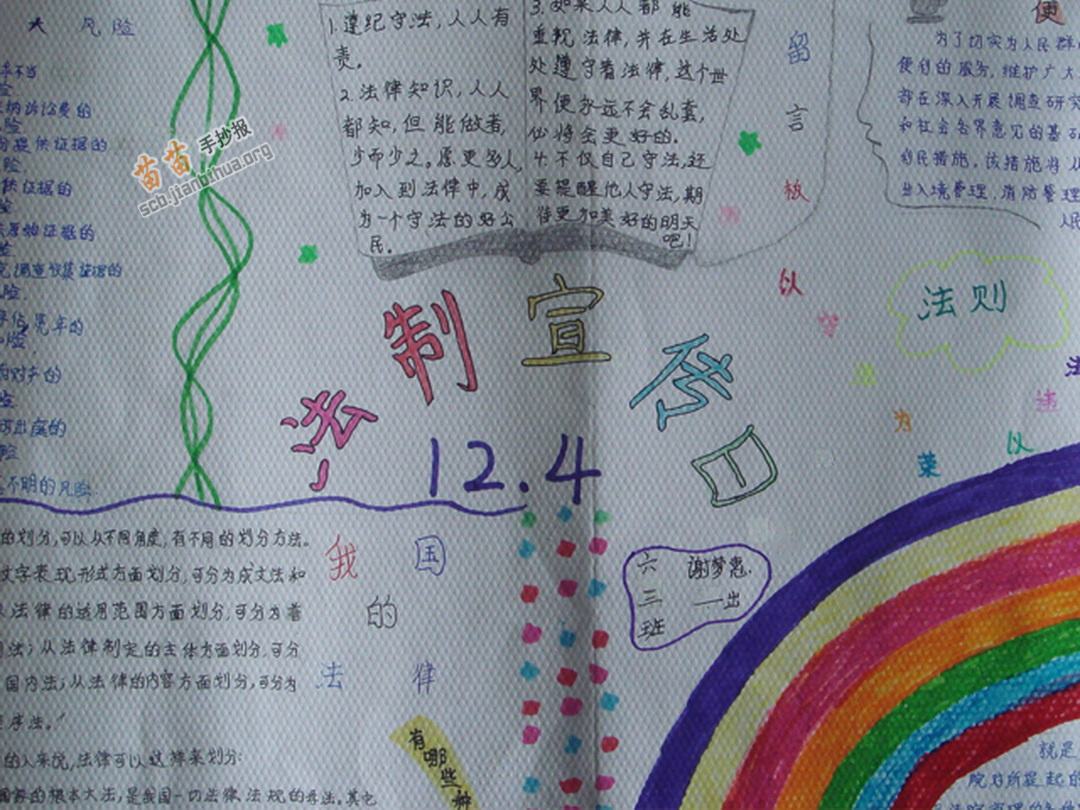 风险
诉讼费的
提供证据的
证据的
原始证据的
调查收集证据的
的
对方的
出庭的
不明的风险
苗苗手抄报
scb.jianbihua.org
1.遵纪守法,人人有
责。
2.法律知识,人人
都知,但能做者,
少而少之。愿更多人,
加入到法律中,成
为一个守法的好公
民。
3.如果人人都能
重视法律,并在生活处
处遵守着法律,这个世
界便永远不会乱套,
必将会更好的.
4.不仅自己守法,还
要提醒他人守法,期
待更加美好的明天
吧!
留
言
板
便
为了切实为人民群
便利的服务,维护广大
部在深入开展调查研究
和社会各界意见的基础
利民措施。该措施将从
出入境管理,消防管理
人民
以
守
法
为
荣
以
违
法
法则
法制宣传日
12.4
的划分,可以从不同角度,有不同的划分方法。
文字表现形式方面划分,可分为成文法和
法律的适用范围方面划分,可分为普
法;从法律制定的主体方面划分,可分
国内法;从法律的内容方面划分,可分为
序法。
的人来说,法律可以这样来划分:
的根本大法,是我国一切法律法规的母法。其它
我国
的
法律
有哪些
六 谢梦惠.
三 ——出
班
就是
院对所提起的